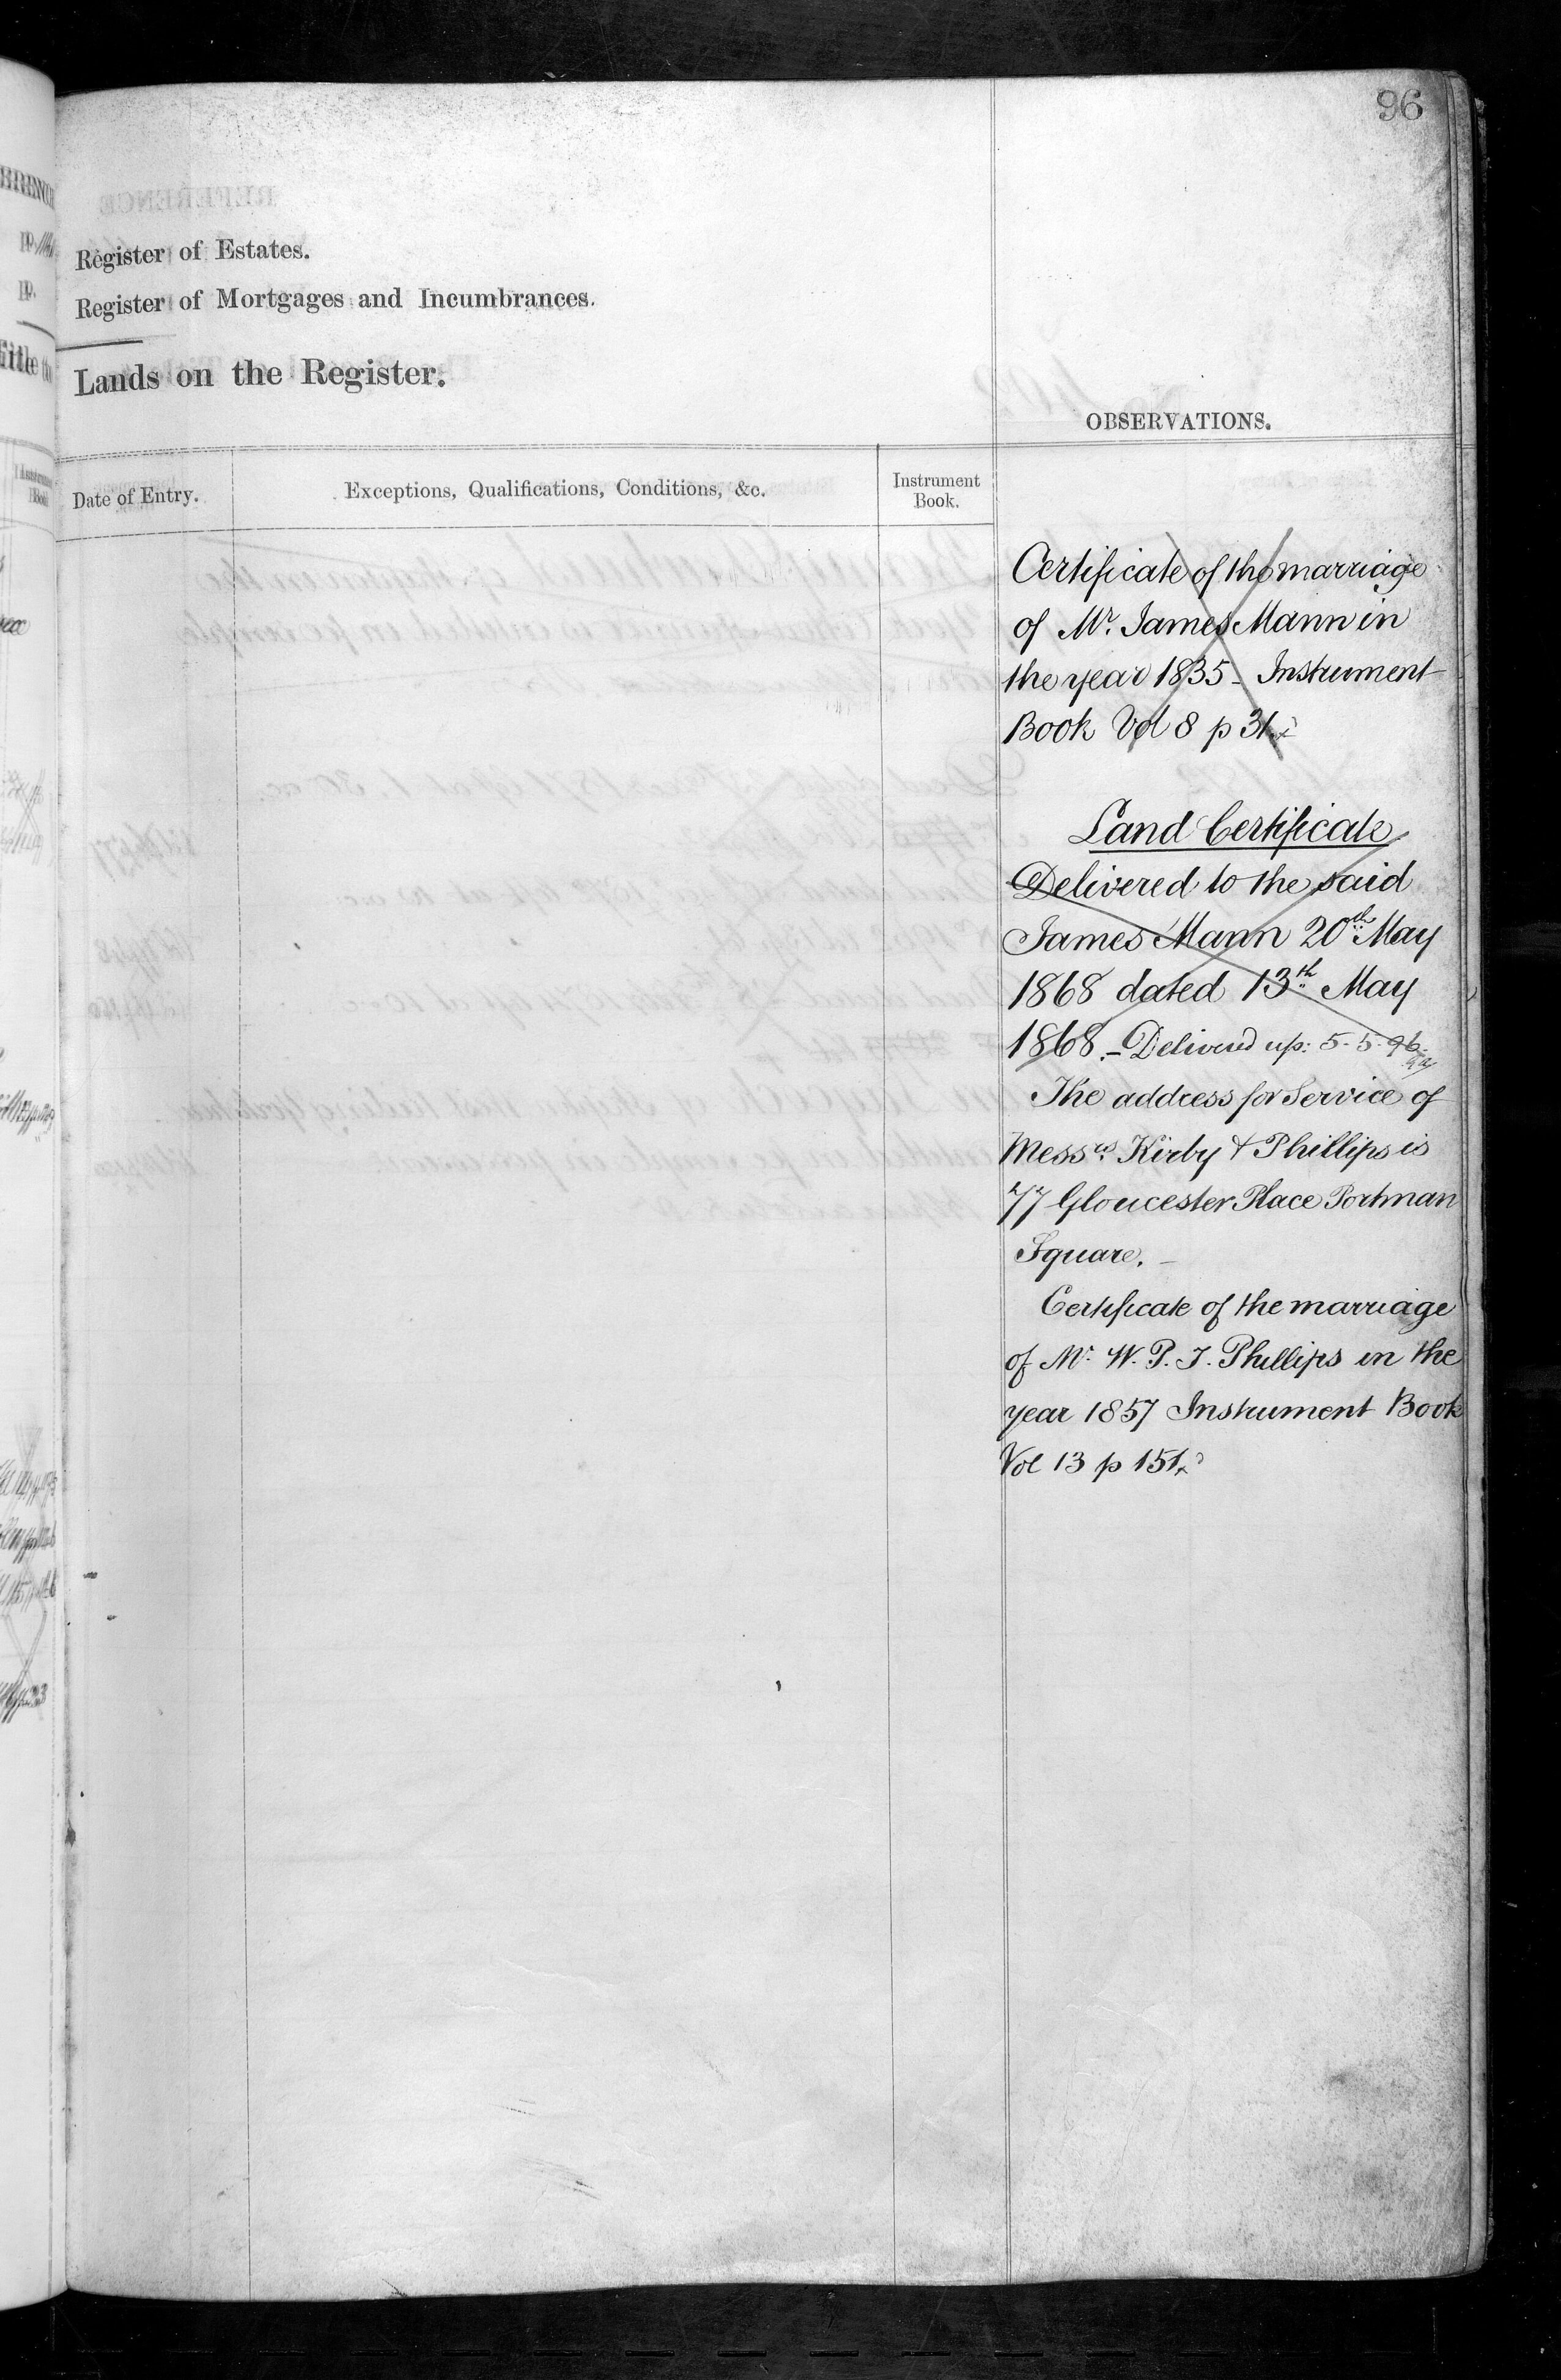 96
Register of Estates.
Register of Mortgages and Incumbrances.
Lands on the Register.
OBSERVATIONS.
Date of Entry.
Exceptions, Qualifications, Conditions, &c.
Instrument
Book.
Certificate of the marriage
of Mr. James Mann in
the year 1835 - Instrument
Book Vol 8 p 31
Land Certificate
Delivered to the said
James Mann 20th May
1868 dated 13th May
1868. - Delivered up: 5-5-96
The address for Service of
Messrs Kirby & Phillips is
77 Gloucester Place Portman
Square. -
Certificate of the marriage
of Mr. W. P. J. Phillips in the
year 1857 Instrument Book
Vol 13 p 151